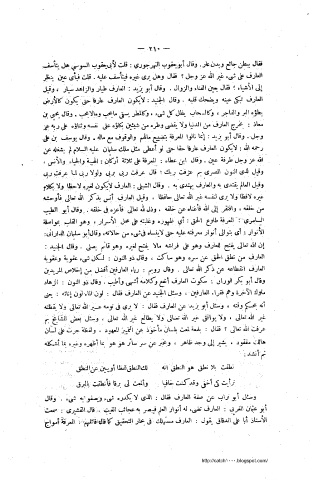 — ٢١٠ —
فقال ببطن جائع وبدن عار. وقال أبو يعقوب النهرجوري: قلت لأبي يعقوب السوسي هل يتأسف
العارف على شيء غير الله عز وجل؟ فقال وهل يرى غيره فيتأسف عليه. قلت فبأي عين ينظر
إلى الأشياء؟ فقال بعين الفناء والزوال. وقال أبو يزيد: العارف طيار والزاهد سيار، وقيل
العارف تبكي عينه ويضحك قلبه. وقال الجنيد: لا يكون العارف عارفا حتى يكون كالأرض
يطؤه البر والفاجر، وكالسحاب يظل كل شيء، وكالمطر يسقي ما يحب وما لا يحب. وقال يحيى بن
معاذ: يخرج العارف من الدنيا ولا يقضي وطره من شيئين بكاؤه على نفسه وثناؤه على ربه عز
وجل. وقال أبو يزيد: إنما نالوا المعرفة بتضييع ما لهم والوقوف مع ماله. وقال يوسف بن علي
رحمه الله: لا يكون العارف عارفا حقا حتى لو أعطي مثل ملك سليمان عليه السلام لم يشغله عن
الله عز وجل طرفة عين. وقال ابن عطاء: المعرفة على ثلاثة أركان: الهيبة والحياء والأنس.
وقيل لذي النون المصري بم عرفت ربك؟ قال: عرفت ربي بربي ولولا ربي لما عرفت ربي
وقيل العالم يقتدى به والعارف يهتدى به. وقال الشبلي: العارف لا يكون لغيره لاحظا ولا بكلام
غيره لافظا ولا يرى لنفسه غير الله تعالى حافظا. وقيل العارف أنس بذكر الله تعالى فأوحشه
من خلقه، وافتقر إلى الله فأغناه عن خلقه. وذل لله تعالى فأعزه في خلقه. وقال أبو الطيب
السامري: المعرفة طلوع الحق
الأنوار،
إن الله تعالى يفتح للعارف وهو على فراشه ما لا يفتح لغيره وهو قائم يصلي. وقال الجنيد:
العارف من نطق الحق عن سره وهو ساكت. وقال ذو النون: لكل شيء عقوبة وعقوبة
العارف انقطاعه عن ذكر الله تعالى. وقال رويم: رياء العارفين أفضل من إخلاص المريدين
وقال أبو بكر الوراق: سكوت العارف أنفع وكلامه أشهى وأطيب. وقال ذو النون: الزهاد
ملوك الآخرة وهم فقراء العارفين. وسئل الجنيد عن العارف فقال: لون الماء لون إنائه: يعني
أنه بحكم وقته. وسئل أبو يزيد عن العارف فقال: لا يرى في نومه غير الله تعالى ولا في يقظته
غير الله تعالى، ولا يوافق غير الله تعالى ولا يطالع غير الله تعالى. وسئل بعض المشايخ بم
عرفت الله تعالى؟ فقال: بلمعة لمعت بلسان مأخوذ عن التمييز المعهود. ولفظة جرت على لسان
هالك مفقود. يشير إلى وجد ظاهر، ويخبر عن سر سائر هو هو بما أظهره وغيره بما أشكله
ثم أنشد:
نطقت بلا نطق هو النطق إنه لك النطق لفظا أو يبين عن النطق
تراءيت كي أخفى وقد كنت خافيا وألمعت لي برقا فأنطقت بالبرق
وسئل أبو تراب عن صفة العارف فقال: الذي لا يكدره شيء ويصفو به كل شيء. وقال
أبو عثمان المغربي: العارف تضيء له أنوار العلم فيبصر به عجائب الغيب. قال القشيري: سمعت
الأستاذ أبا علي الدقاق يقول: العارف مستهلك في بحار التحقيق كما قال قائلهم: المعرفة أمواج